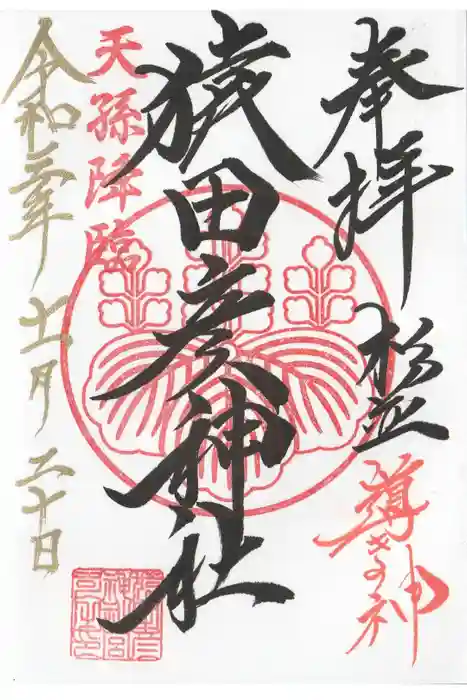 奉拝
松並
導きの神
猿田彦神社
天孫降臨
令和二年
十一月
二十日